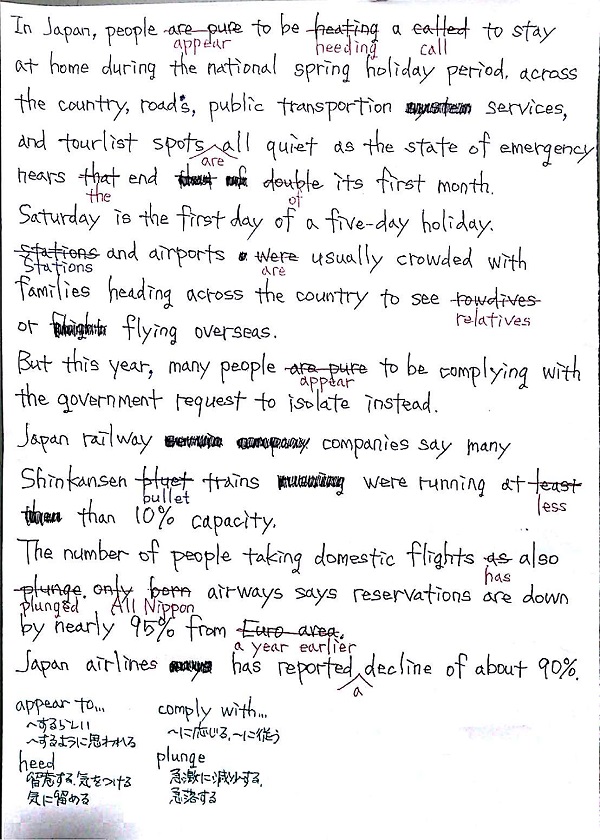 In Japan, people are pure to be heating a called to stay
appear heeding call
at home during the national spring holiday period. across
the country, road's, public transportion services,
and tourlist spots all quiet as the state of emergency
are
nears that end double its first month.
the of
Saturday is the first day of a five-day holiday.
stations and airports were usually crowded with
Stations are
families heading across the country to see rowdives
relatives
or flying overseas.
But this year, many people are pure to be complying with
appear
the government request to isolate instead.
Japan railway companies say many
Shinkansen bluet trains were running at least
bullet less
than 10% capacity.
The number of people taking domestic flights as also
has
plunge. only born airways says reservations are down
plunged All Nippon
by nearly 95% from Euro area.
a year earlier
Japan airlines has reported decline of about 90%.
a
appear to... comply with...
〜するらしい 〜に応じる、〜に従う
〜するように思われる
heed plunge
留意する、気をつける 急激に減少する、
気に留める 急落する